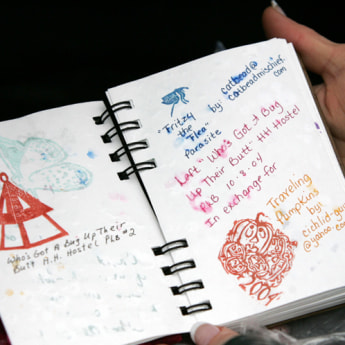 Who's Got A Bug Up Their
Butt H.H. Hostel PLB #2
"Fritzy
the
"Flea"
Parasite
by catbead@
catbeadmischief.
com
Left "Who's Got A Bug
Up Their Butt" HH Hostel
PLB 10.8.04
In exchange for
Traveling
Pumpkins
by:
cichlid-guy
@yahoo.com
2004